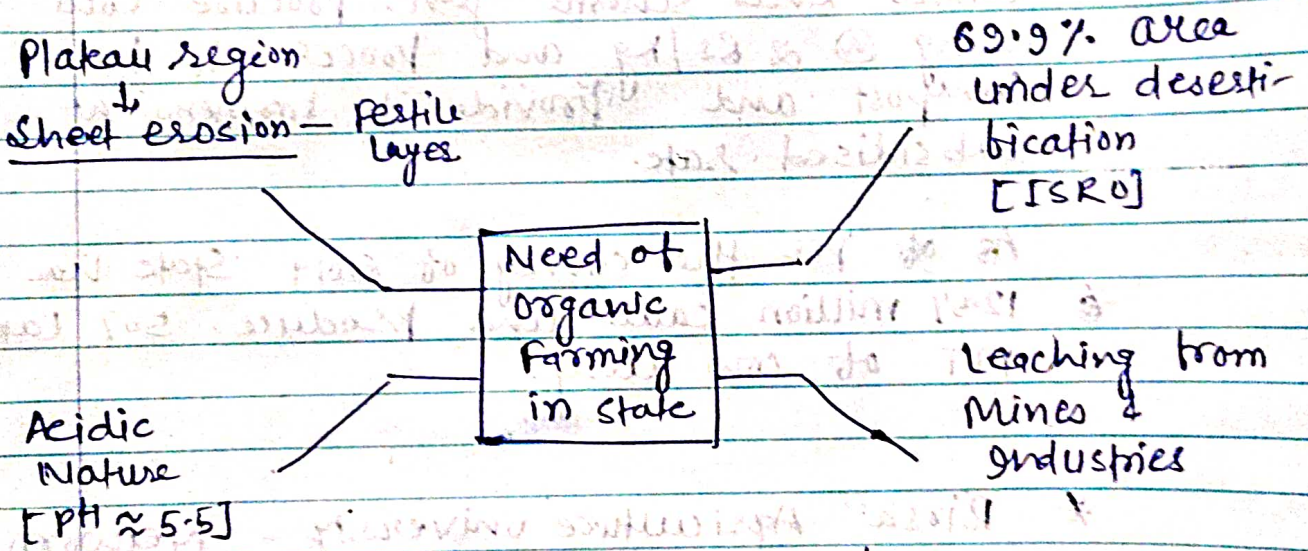 Plateau region
↓
Sheet erosion – Fertile
Layer
69.9% area
under deserti-
fication
[ISRO]
Need of
organic
Farming
in state
Acidic
Nature
[PH ≈ 5.5]
Leaching from
Mines &
Industries